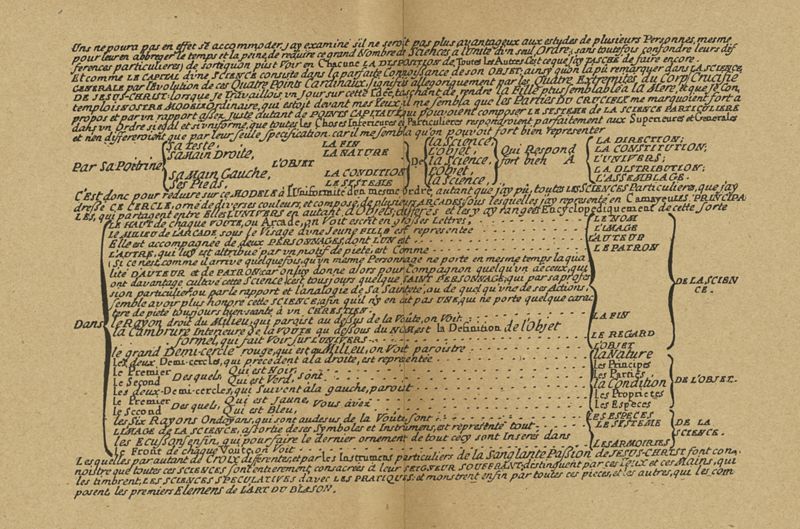 Uns ne poura pas en effet s'é accommoder, j'ay examiné s'il ne seroit pas plus avantageux aux estudes de plusieurs Personnes, mesme
pour leur en abbreger le temps et la peine, de reduire ce grand Nombre de Sciences à l'unité d'un seul Ordre; sans toutefois confondre leurs dif
ferences particulieres: de sorte qu'on pust Voir en Chacune LA DISPOSITION de Toutes les Autres. C'est ce que j'ay TASCHÉ de faire encore.
Et comme LE CAPITAL d'une SCIENCE consiste dans la parfaite Connoissance de son OBJET, ainsy qu'on la pû remarquer dans LA SCIENCE
GENERALE par l'évolution de ces Quatre Points Cardinaux, signifiés allegoriquement par les Quatre Extremités du Corps Crucifié
DE JESUS-CHRIST: lorsque je Travaillois un jour sur cette Idée, taschant de rendre la Fille plus semblable à la Mere, et que je Con
templois NOSTRE MODELE Ordinaire, qui estoit devant mes Yeux; il me sembla que les PARTIES DU CRUCIFIX me marquoient fort a
propos et par un rapport assez juste autant de POINTS CAPITAUX, qui pouvoient composer LE SISTEME DE LA SCIENCE PARTICULIERE
dans un Ordre si égal et si uniforme, que toutes les Choses Inferieures et Particulieres respondroient parfaitement aux Superieures et Generales
et n'en differeroient que par leur seule Specification. car il me sembla qu'on pouvoit fort bien representer
Par Sa Poitrine, L'OBJET De Qui Respond fort bien A
Sa teste, LA FIN la Science, LA DIRECTION;
Sa Main Droite, LA NATURE L'objet, LA CONSTITUTION;
la Science, L'UNIVERS;
Sa Main Gauche, LA CONDITION L'objet, LA DISTRIBUTION;
Ses Pieds, LE SISTEME la Science, L'ASSEMBLAGE.
C'est donc pour reduire sur ce MODELE à l'Uniformité d'en mesme ordre, autant que j'ay pû, toutes LES SCIENCES Particulieres, que j'ay
dressé CE CERCLE, orné de diverses couleurs, et composé de plusieurs ARCADES, sous lesquelles j'ay representé en Camayeu LES PRINCIPA
LES, qui partagent entre Elles L'UNIVERS en autant d'Objets diferés. et les y ay rangées Encyclopediquement de cette sorte
Dans
LE HAUT de chaque VOUTE, ou Arcade, on Voit escrit en grosses Lettres, LE NOM
LE MILIEU de L'ARCADE sous le Visage d'une Jeune FILLE est representée L'IMAGE
Elle est accompagnée de deux PERSONNAGES, dont L'UN est L'AUTEUR
L'AUTRE, qui luy est attribué par un motif de pieté, est Comme LE PATRON
(Si ce n'est, comme il arrive quelquefois, qu'un mesme Personnage ne porte en mesme temps la qua
lité D'AUTEUR et de PATRON: car on luy donne alors pour Compagnon quelqu'un de ceux, qui
ont davantage cultivé cette Science. c'est toujours quelque SAINT PERSONNAGE, qui par sa profes
sion particuliere, ou par le rapport et l'analogie de sa Sainteté, ou de quelqu'une de ses Actions,
semble avoir plus honoré cette SCIENCE, afin qu'il n'y en ait pas UNE, qui ne porte quelque carac
tere de pieté toujours bienseante à un CHRESTIEN.
DE LA SCIEN
CE.
le Rayon droit du Milieu, qui paroist au dessus de la Voute, on Voit LA FIN
la Cambrure Interieure de la VOUTE au dessous du NOM est la Definition de l'Objet
formel, qui fait Voir sur L'UNIVERS LE REGARD
le grand Demi-cercle rouge, qui est au MILIEU, on Voit paroistre L'OBJET
les deux Demi-cercles, qui precedent a la droite, est representée la Nature
le Premier Desquels, Qui est Noir, les Principes
le Second Qui est Verd, sont les Parties
les deux Demi-cercles, qui suivent a la gauche, paroit la Condition
le Premier Desquels, Qui est jaune, Vous avez les Proprietés
le Second Qui est Bleu, les Especes
DE L'OBJET.
les Six Rayons Ondoyans, qui sont audessus de la Voûte, sont LES ESPECES
L'IMAGE DE LA SCIENCE, assortie de ses Symboles et Instrumens, est representé tout LE SISTEME
les Ecussons enfin, qui pour faire le dernier ornement de tout cecy sont Inserés dans
le Front de chaque Voute, on Voit LES ARMOIRIES
DE LA
SCIENCE.
Lesquelles par autant de CROIX differentes, et par les Instrumens particuliers de la Sanglante Passion de JESUS-CHRIST font con
noistre que toutes ces SCIENCES sont entierement consacrées à leur SEIGNEUR SOUFFRANT; distinguent par ces Yeux et ces Mains, qui
les timbrent, LES SCIENCES SPECULATIVES d'avec LES PRATIQUES; et monstrent enfin par toutes ces pieces, et les autres, qui les com
posent, les premiers Elemens de L'ART DU BLASON.